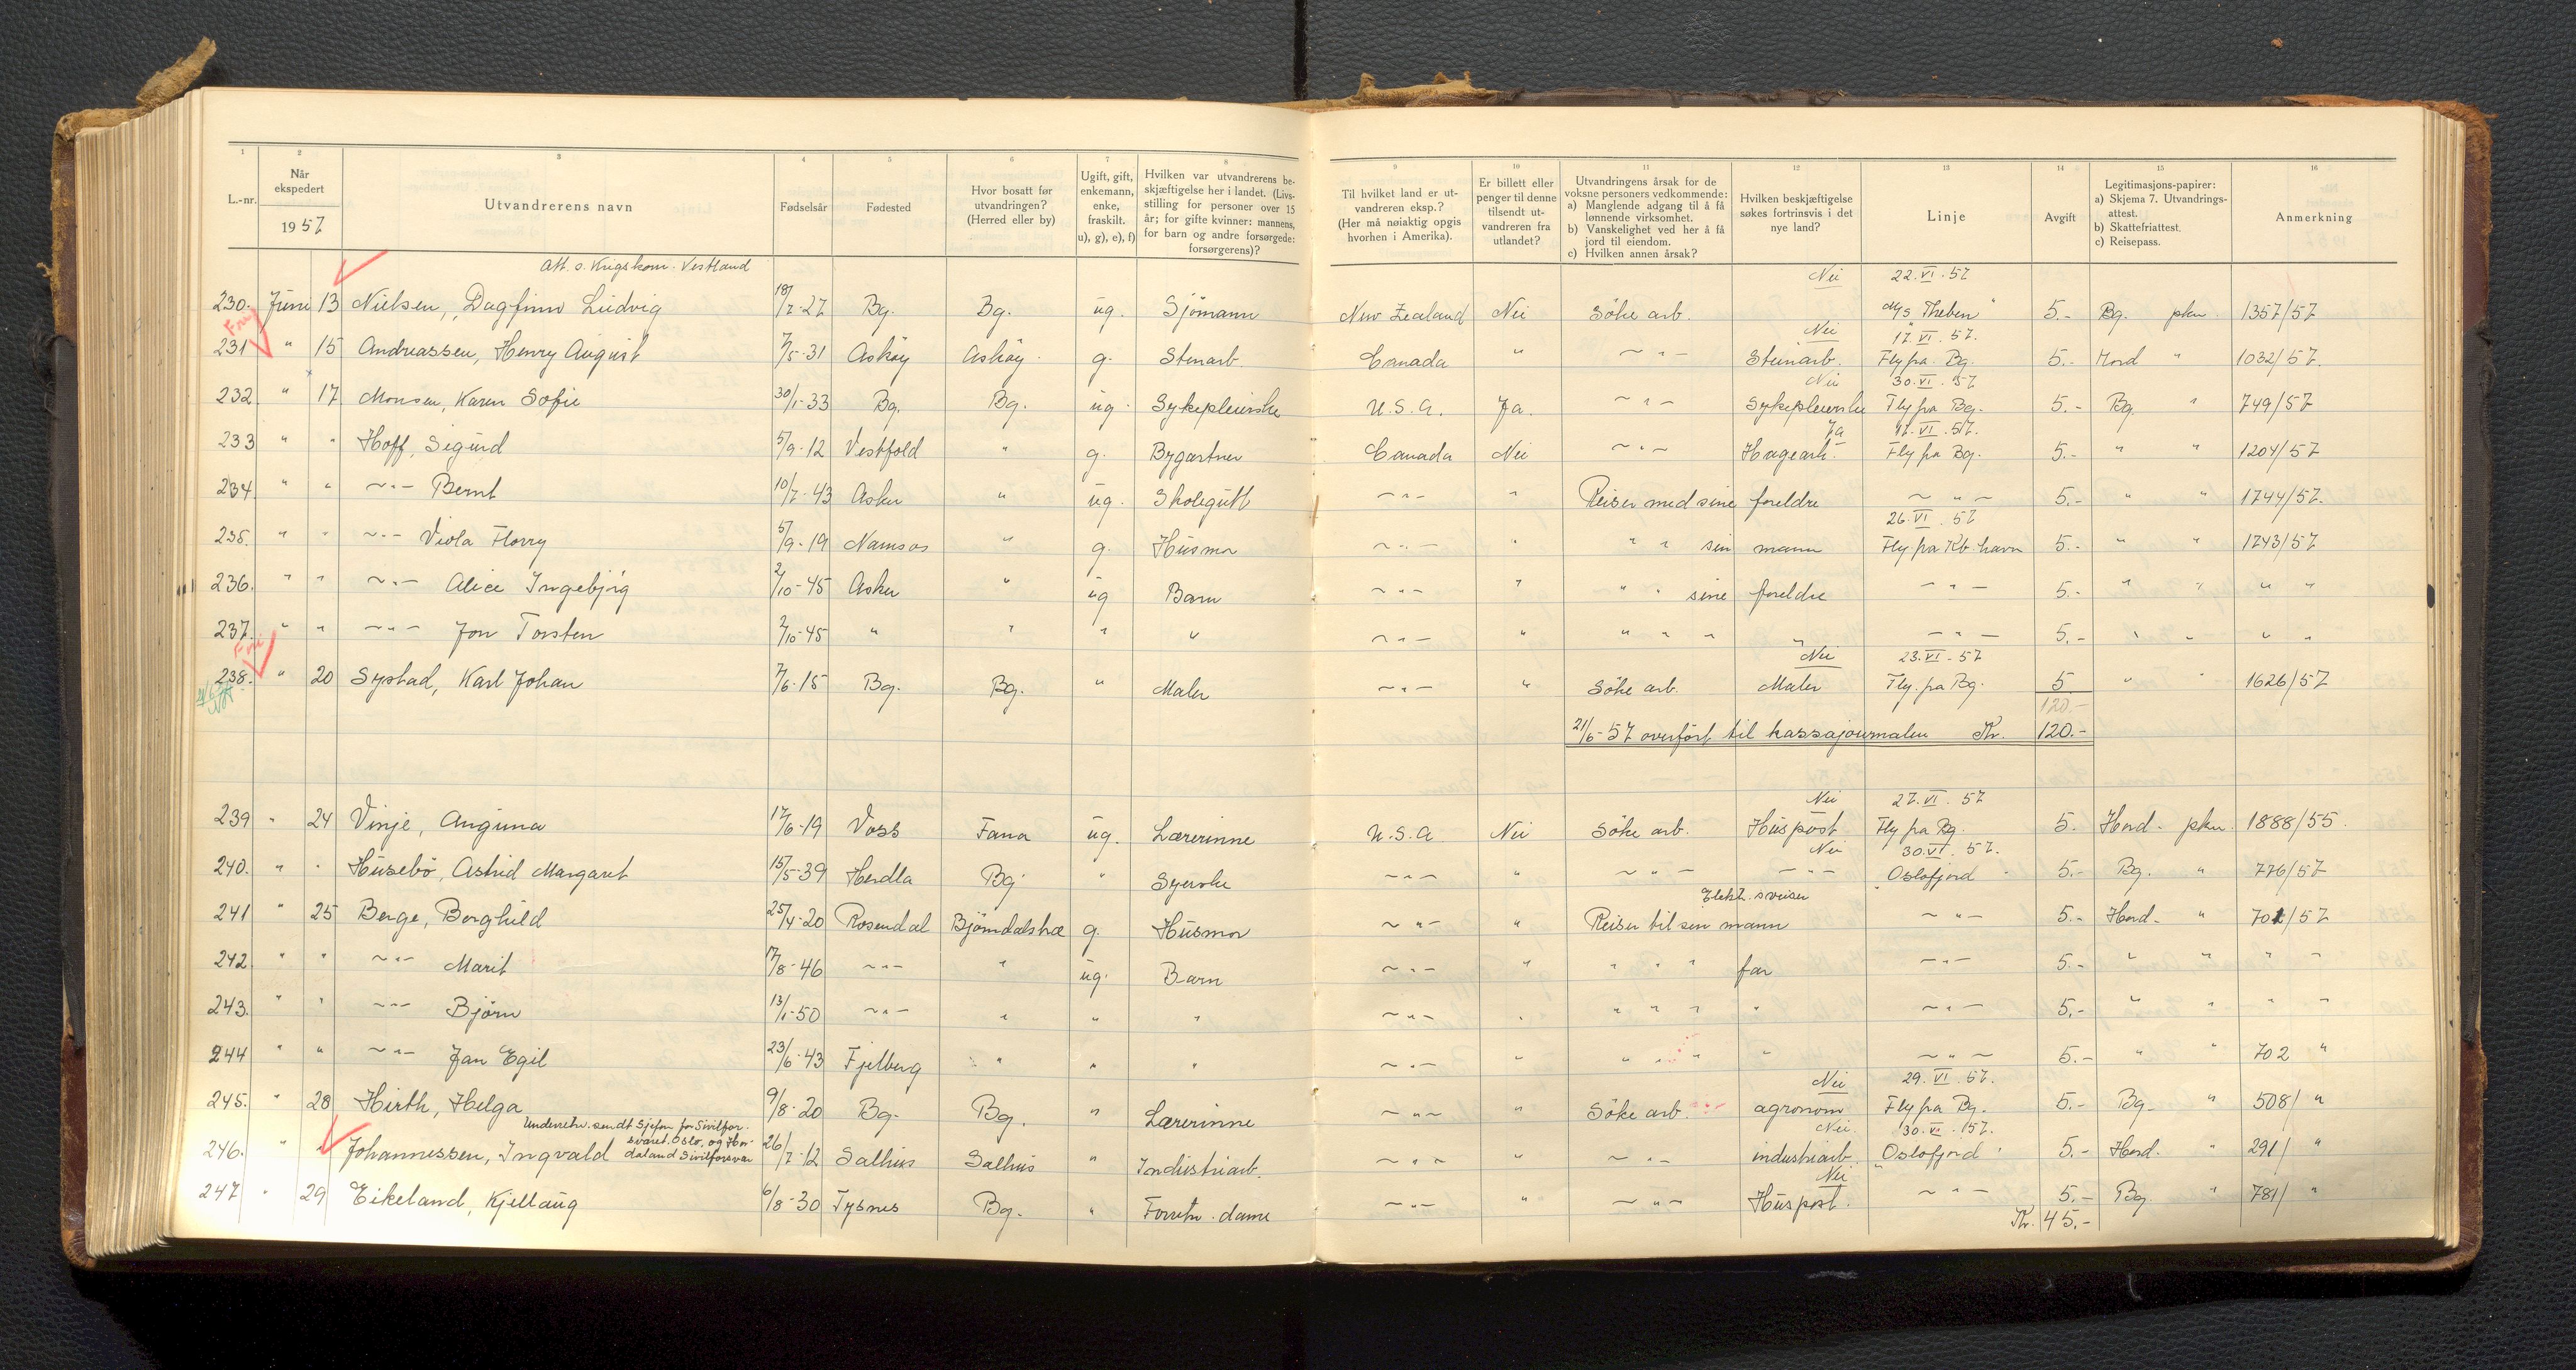 1 2 3 4 5 6 7 8 9 10 11 12 13 14 15 16
L.-nr. | Når ekspedert 1957 | Utvandrerens navn | Fødselsår | Fødested | Hvor bosatt før utvandringen? (Herred eller by) | Ugift, gift, enkemann, enke, fraskilt. u), g), e), f) | Hvilken var utvandrerens beskjæftigelse her i landet. (Livsstilling for personer over 15 år; for gifte kvinner: mannens, for barn og andre forsørgede: forsørgerens)? | Til hvilket land er utvandreren eksp.? (Her må nøiaktig opgis hvorhen i Amerika). | Er billett eller penger til denne tilsendt utvandreren fra utlandet? | Utvandringens årsak for de voksne personers vedkommende: a) Manglende adgang til å få lønnende virksomhet. b) Vanskelighet ved her å få jord til eiendom. c) Hvilken annen årsak? | Hvilken beskjæftigelse søkes fortrinsvis i det nye land? | Linje | Avgift | Legitimasjons-papirer: a) Skjema 7. Utvandringsattest. b) Skattefriattest. c) Reisepass. | Anmerkning
Att. s. Krigskom. Vestland Nei 22.VI.57
230. Juni 13 Nielsen, Dagfinn Ludvig 18/7-27 Bg. Bg. ug. Sjömann New Zealand Nei Söke arb. M/s Theben" 5.- Bg. pkm. 1357/57
Fra Nei 17.VI.57.
231 " 15 Andreassen, Henry August 7/5-31 Asköy Asköy g. Stenarb. Canada " ~"~ Steinarb. Fly fra Bg. 5.- Hord " 1032/57.
Nei 30.VI.57
232 " 17 Monsen, Karen Sofie 30/1-33 Bg. Bg. ug. Sykepleierske U.S.A. Ja. ~"~ Sykepleierske Fly fra Bg. 5.- Bg. " 749/57
Ja 17.VI.57.
233 " " Hoff, Sigurd 5/9-12 Vestfold " g. Bygartner Canada Nei ~"~ Hagearb. Fly fra Bg. 5.- " " 1204/57
234 " " ~"~ Bernt 10/7-43 Asker " ug. Skolegutt ~"~ " Reiser med sine foreldre ~"~ 5.- " " 1744/57.
26.VI.57
235. " " ~"~ Viola Florry 5/9-19 Namsos " g. Husmor ~"~ " " " sin mann Fly fra Kb.havn 5.- " " 1743/57
236. " " ~"~ Alice Ingebjörg 2/10-45 Asker " ug Barn ~"~ " " " sine foreldre ~"~ 5.- " " " "
237. " " ~"~ Jon Torsten 2/10-45 " " " " ~"~ " " " " " ~"~ 5.- " " " "
Fra Nei 23.VI.57
238. " 20 Systad, Karl Johan 7/6-15 Bg. Bg. " Maler ~"~ " Söke arb. Maler Fly fra Bg. 5 " " 1626/57
120.-
21/6-57 overfört til kassajournalen Kr. 120.-
Nei 27.VI.57
239 " 24 Vinje, Anguna 17/6-19 Voss Fana ug. Lærerinne U.S.A Nei Söke arb. Huspost Fly fra Bg. 5. Hord- pkm. 1888/55.
Nei 30.VI.57.
240. " " Husebö, Astrid Margaret 15/5-39 Herdla Bg. " Syerske ~"~ " ~"~ ~"~ "Oslofjord" 5.- Bg. " 776/57
Elektr. sveiser
241 " 25 Berge, Borghild 25/4-20 Rosendal Björndalstræ g. Husmor ~"~ " Reiser til sin mann ~"~ 5.- Hord- " 701/57
242 " " ~"~ Marit 17/8-46 ~"~ " ug. Barn ~"~ " " " " far ~"~ 5.- " " " "
243. " " ~"~ Björn 13/1-50 ~"~ " " " ~"~ " " " " " ~"~ 5,- " " " "
244 " " ~"~ Jan Egil 23/6-43 Fjelberg " " " ~"~ " " " " " ~"~ 5.- " " 702 "
Nei 29.VI.57.
245. " 28 Hirth, Helga 9/8-20 Bg. Bg. " Lærerinne ~"~ " Söke arb. agronom Fly fra Bg. 5.- Bg- " 508/ "
Underretn. sendt Sjefen for Sivilforsvaret. Oslo, og Hordaland Sivilforsvar Nei. 30.VI.57.
246. " " Johannessen, Ingvald 26/7-12 Salhus Salhus " Industriarb. ~"~ " ~"~ industriarb. "Oslofjord" 5.- Hord. " 291/ "
Nei
247 " 29 Eikeland, Kjellaug 6/8-30 Tysnes Bg. " Forretn. dame ~"~ " ~"~ Huspost. ~"~ 5.- Bg. " 781/ "
Kr. 45.-